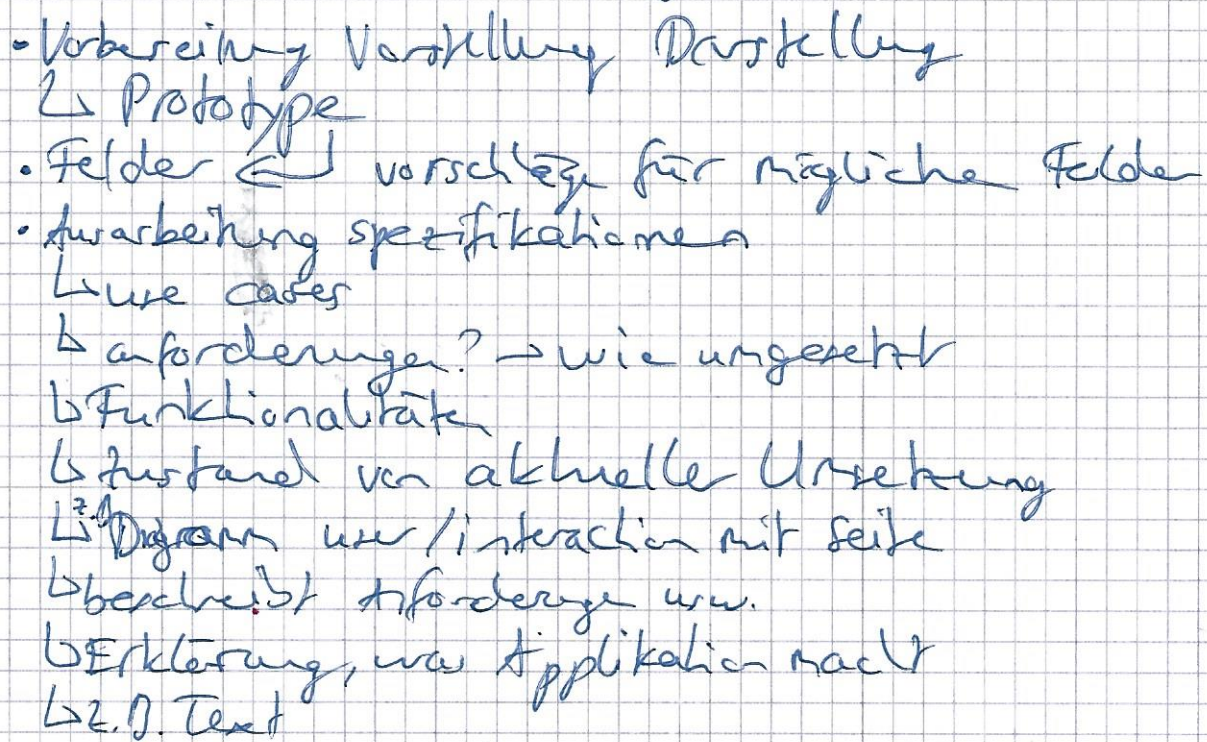 • Vorbereitung Vorstellung Darstellung
↳ Prototype
• Felder ↵ vorschläge für mögliche Felder
• Ausarbeitung spezifikationen
↳ use cases
↳ anforderungen? → wie umgesetzt
↳ Funktionalitäten
↳ Zustand von aktueller Umsetzung
↳ z.B. Diagramm user/interaction mit Seite
↳ beschreibt Anforderungen usw.
↳ Erklärung, was Applikation macht
↳ z.B. Text